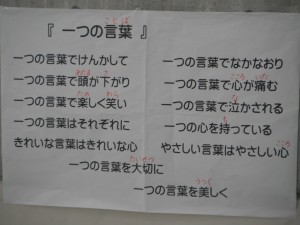 『 一つの言葉 』
一つの言葉でけんかして
一つの言葉でなかなおり
一つの言葉で頭が下がり
一つの言葉で心が痛む
一つの言葉で楽しく笑い
一つの言葉で泣かされる
一つの言葉はそれぞれに
一つの心を持っている
きれいな言葉はきれいな心
やさしい言葉はやさしい心
一つの言葉を大切に
一つの言葉を美しく